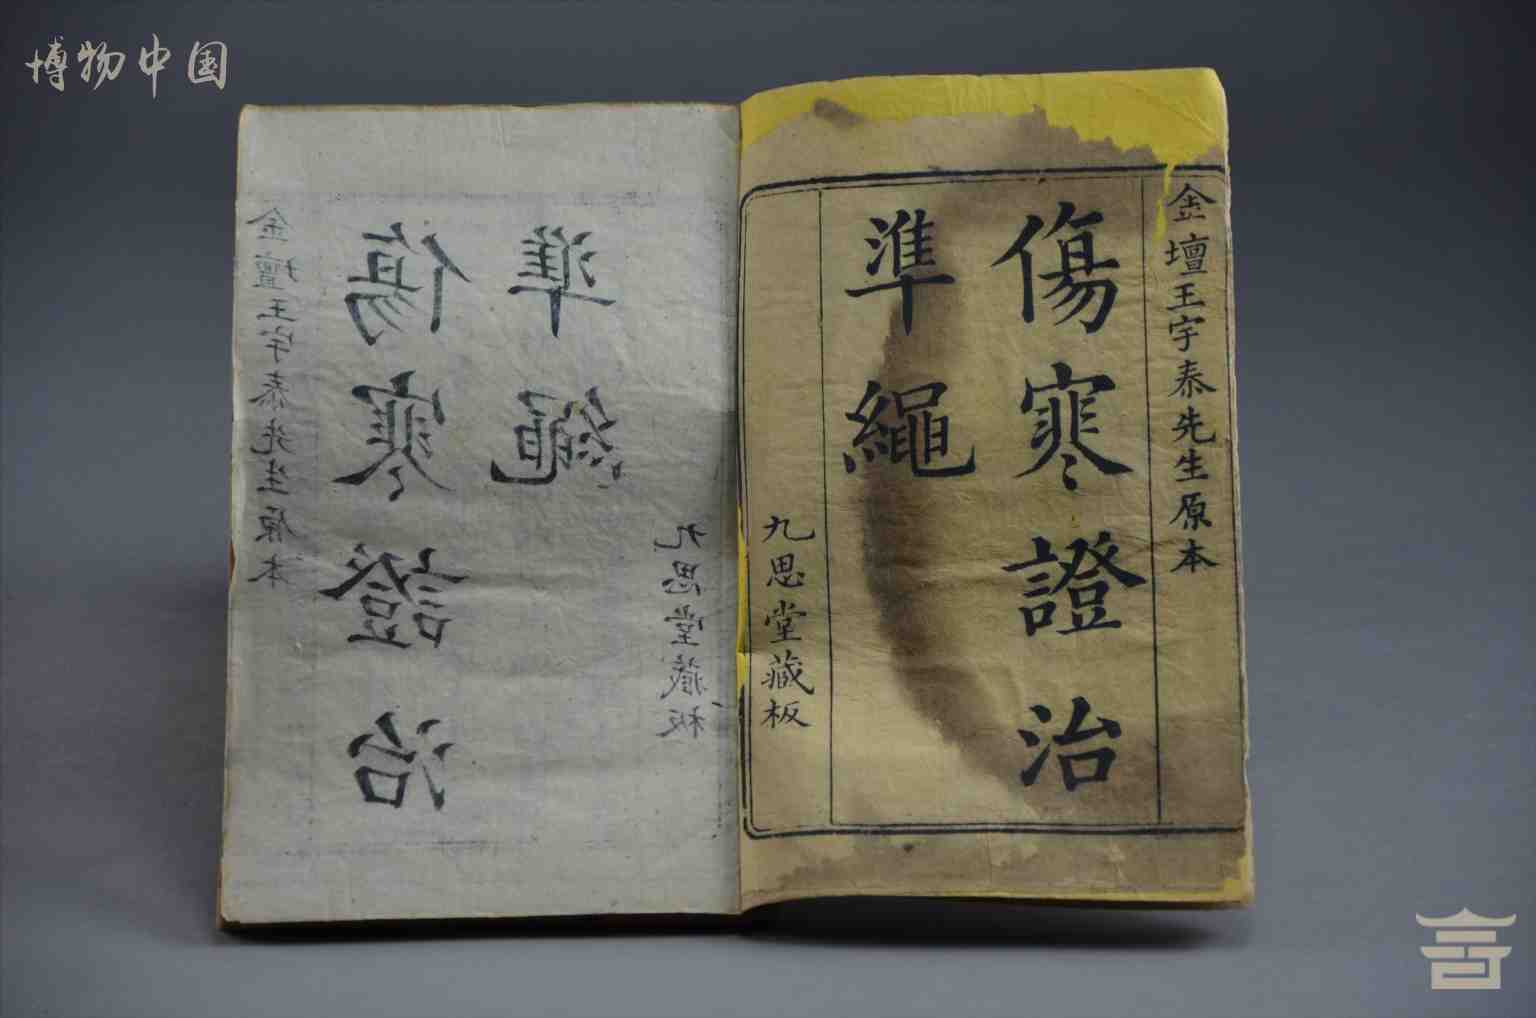 博物中国
金壇王宇泰先生原本
傷寒證治
準繩
九思堂藏板
準繩
傷寒證治
金壇王宇泰先生原本
九思堂藏板